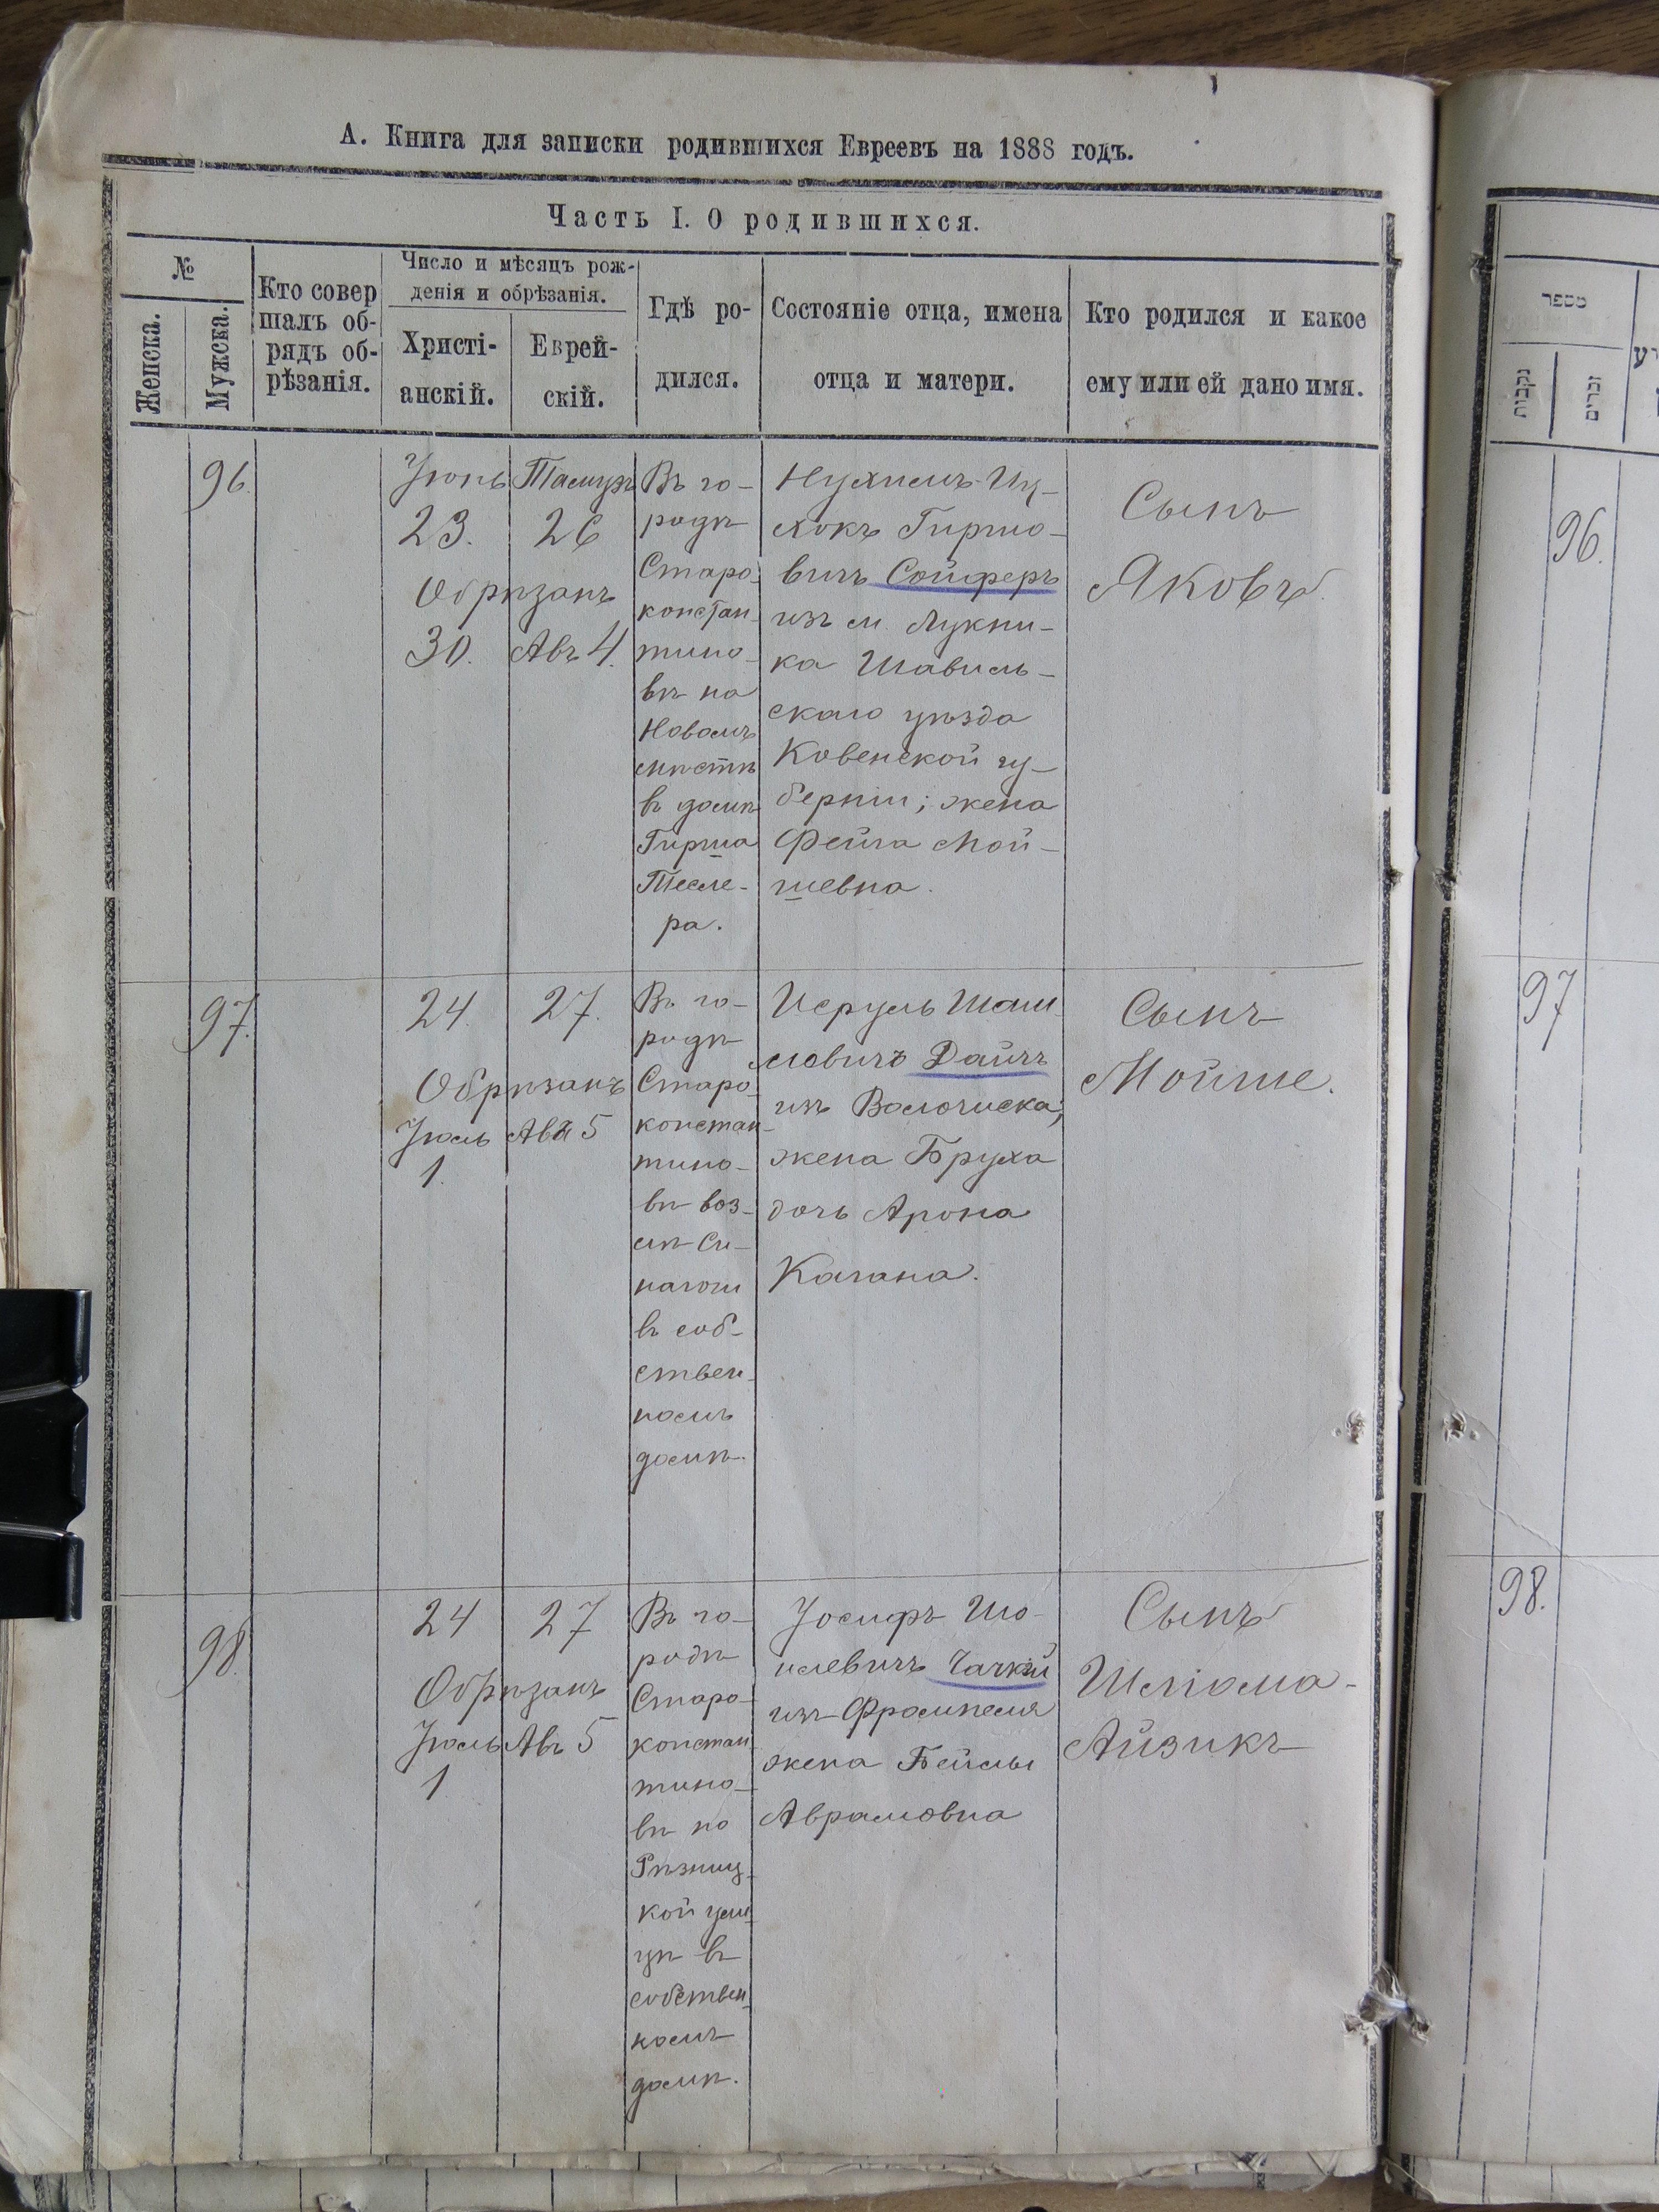 А. Книга для записки родившихся Евреевъ на 1888 годъ.
Часть I. О родившихся.
№
Женска.
Мужска.
Кто совер
шалъ об-
рядъ об-
рѣзанія.
Число и мѣсяцъ рож-
денія и обрѣзанія.
Христі-
анскій.
Еврей-
скій.
Гдѣ ро-
дился.
Состояніе отца, имена
отца и матери.
Кто родился и какое
ему или ей дано имя.
96.
Іюнь
23.
Тамузъ
26
Обрѣзанъ
30.
Авъ 4.
Въ го-
родѣ
Старо-
констан-
тино-
вѣ на
Новомъ
мѣстѣ
въ домѣ
Гирша
Тесле-
ра.
Нухимъ-Иц-
хокъ Гиршо-
вичъ Сойферъ
изъ м. Лукни-
ка Шавель-
скаго уѣзда
Ковенской гу-
берніи; жена
Фейга Мой-
шевна.
Сынъ
Яковъ.
97.
24.
27.
Обрѣзанъ
Іюль
1.
Авъ 5
Въ го-
родѣ
Старо-
констан-
тино-
вѣ воз-
лѣ Си-
нагоги
въ соб-
ствен-
номъ
домѣ.
Исруль
мовичъ Дайчъ
изъ Волочиска;
жена Бруха
дочь Арона
Кагана.
Сынъ
Мойше.
98.
24
27
Обрѣзанъ
Іюль
1
Авъ 5
Въ го-
родѣ
Старо-
констан-
тино-
вѣ по
Рѣзниц-
кой ули-
цѣ въ
собствен-
номъ
домѣ.
Іосифъ Шо-
илевичъ Чачкій
изъ Фрампеля
жена Бейлы
Аврамовна
Сынъ
Шліома-
Айзикъ
מספר
נקבות
זכרים
96.
97
98.